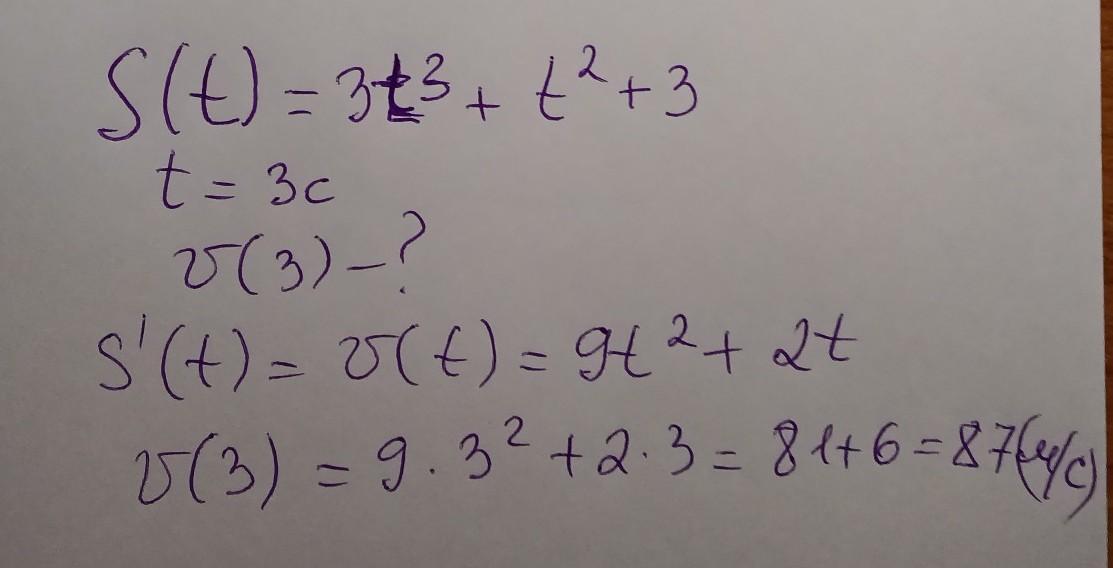 S(t) = 3t³ + t² + 3
t = 3c
v(3) – ?
S'(t) = v(t) = 9t² + 2t
v(3) = 9 · 3² + 2 · 3 = 81 + 6 = 87(м/с)